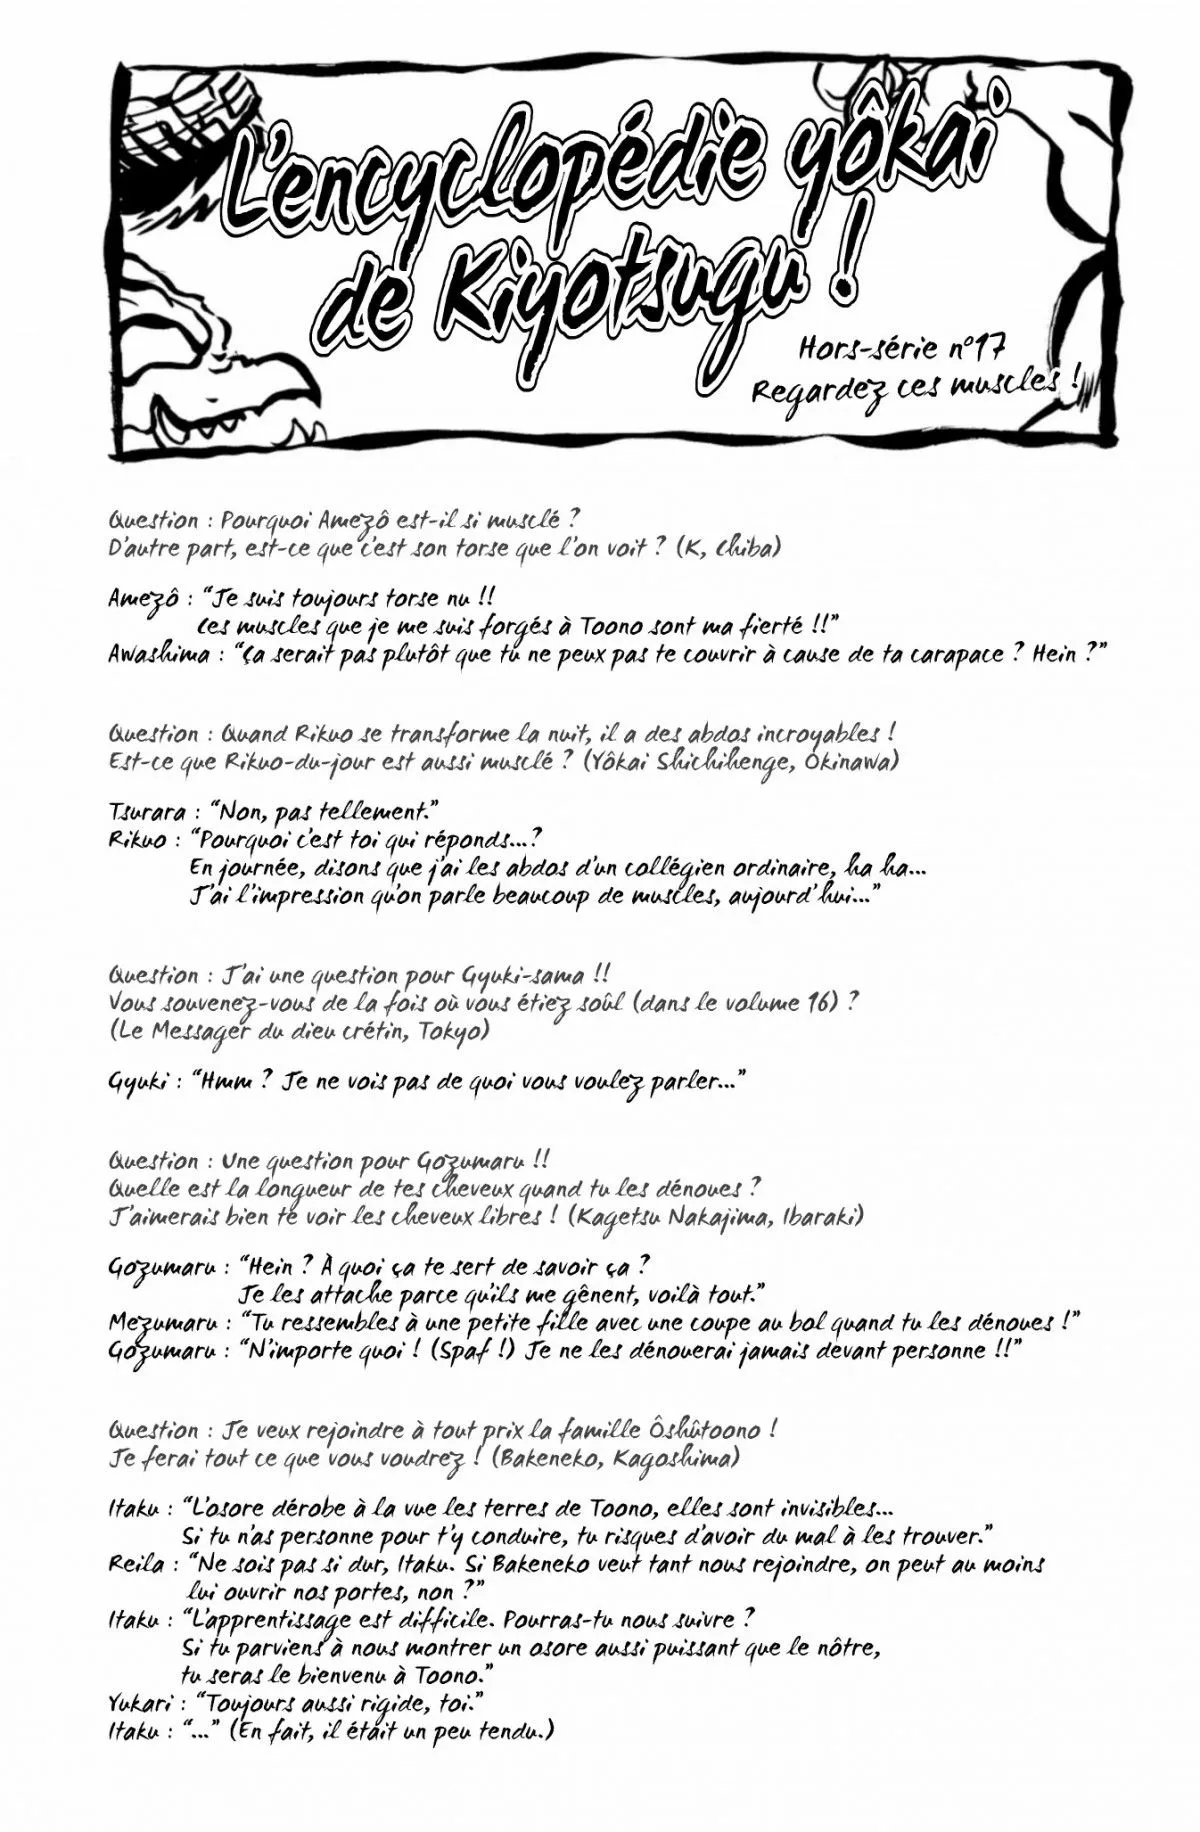 L'encyclopédie yôkai
de Kiyotsugu !
Hors-série n°17
Regardez ces muscles !
Question : Pourquoi Amezô est-il si musclé ?
D'autre part, est-ce que c'est son torse que l'on voit ? (K, Chiba)
Amezô : "Je suis toujours torse nu !!
Ces muscles que je me suis forgés à Toono sont ma fierté !!"
Awashima : "Ça serait pas plutôt que tu ne peux pas te couvrir à cause de ta carapace ? Hein ?"
Question : Quand Rikuo se transforme la nuit, il a des abdos incroyables !
Est-ce que Rikuo-du-jour est aussi musclé ? (Yôkai Shichihenge, Okinawa)
Tsurara : "Non, pas tellement."
Rikuo : "Pourquoi c'est toi qui réponds...?
En journée, disons que j'ai les abdos d'un collégien ordinaire, ha ha...
J'ai l'impression qu'on parle beaucoup de muscles, aujourd'hui..."
Question : J'ai une question pour Gyuki-sama !!
Vous souvenez-vous de la fois où vous étiez soûl (dans le volume 16) ?
(Le Messager du dieu crétin, Tokyo)
Gyuki : "Hmm ? Je ne vois pas de quoi vous voulez parler..."
Question : Une question pour Gozumaru !!
Quelle est la longueur de tes cheveux quand tu les dénoues ?
J'aimerais bien te voir les cheveux libres ! (Kagetsu Nakajima, Ibaraki)
Gozumaru : "Hein ? À quoi ça te sert de savoir ça ?
Je les attache parce qu'ils me gênent, voilà tout."
Mezumaru : "Tu ressembles à une petite fille avec une coupe au bol quand tu les dénoues !"
Gozumaru : "N'importe quoi ! (Spaf !) Je ne les dénouerai jamais devant personne !!"
Question : Je veux rejoindre à tout prix la famille Ôshûtoono !
Je ferai tout ce que vous voudrez ! (Bakeneko, Kagoshima)
Itaku : "L'osore dérobe à la vue les terres de Toono, elles sont invisibles...
Si tu n'as personne pour t'y conduire, tu risques d'avoir du mal à les trouver."
Reila : "Ne sois pas si dur, Itaku. Si Bakeneko veut tant nous rejoindre, on peut au moins
lui ouvrir nos portes, non ?"
Itaku : "L'apprentissage est difficile. Pourras-tu nous suivre ?
Si tu parviens à nous montrer un osore aussi puissant que le nôtre,
tu seras le bienvenu à Toono."
Yukari : "Toujours aussi rigide, toi."
Itaku : "..." (En fait, il était un peu tendu.)